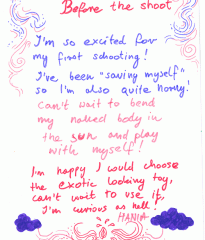 Before the shoot
I'm so excited for
my first schooting!
I've been "saving myself"
so I'm also quite horny!
Can't wait to bend
my naked body in
the sun and play
with myself!
I'm happy I would choose
the exotic looking toy,
can't wait to use it,
I'm curious as hell!
HANIA